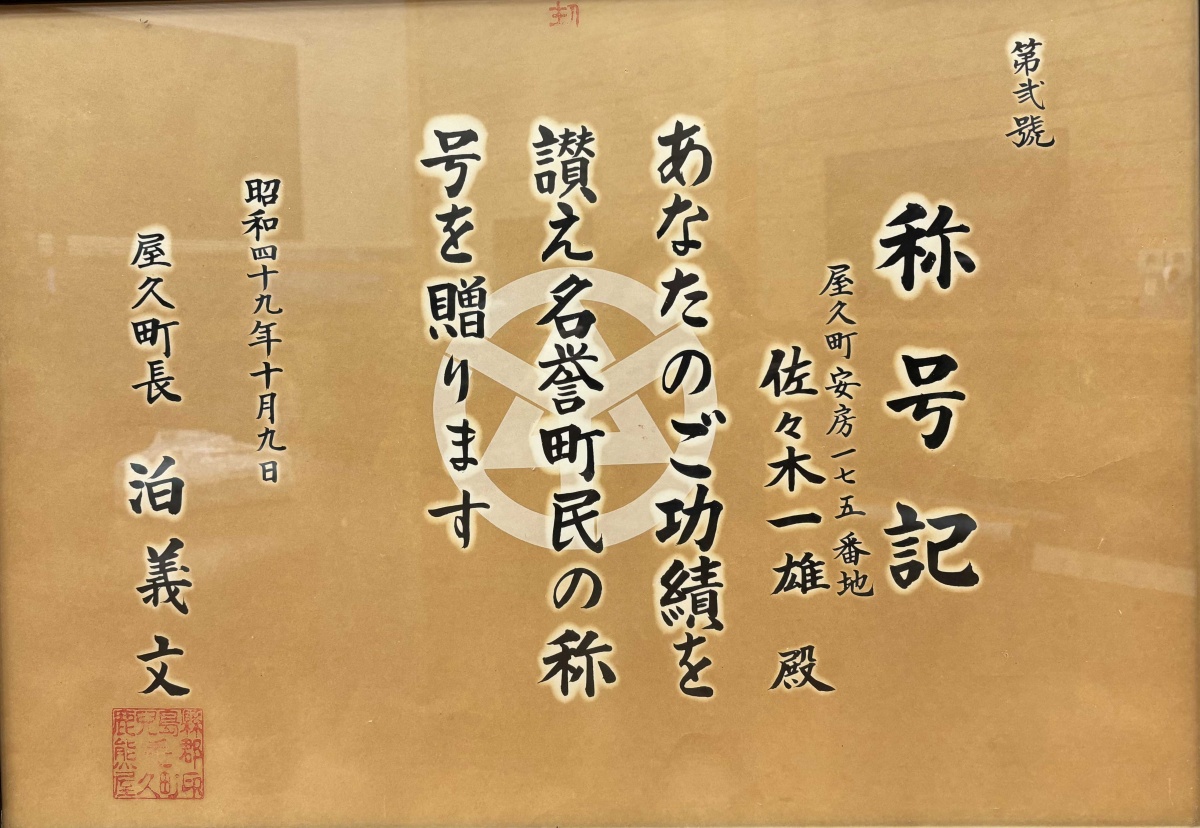 第弐號
称号記
屋久町安房一七五番地
佐々木一雄 殿
あなたのご功績を
讃え名誉町民の称
号を贈ります
昭和四十九年十月九日
屋久町長 泊義文